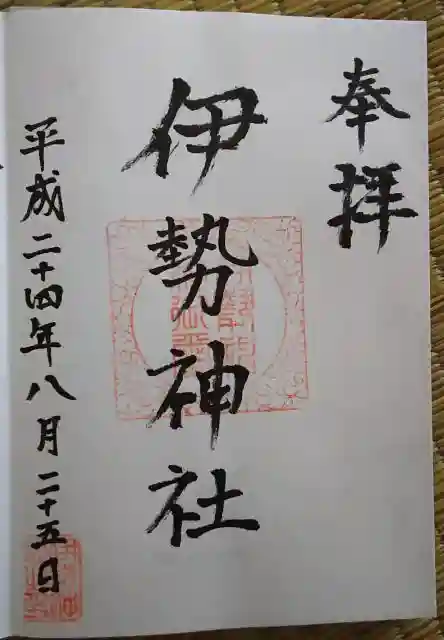 奉拝
伊勢神社
平成二十四年八月二十五日